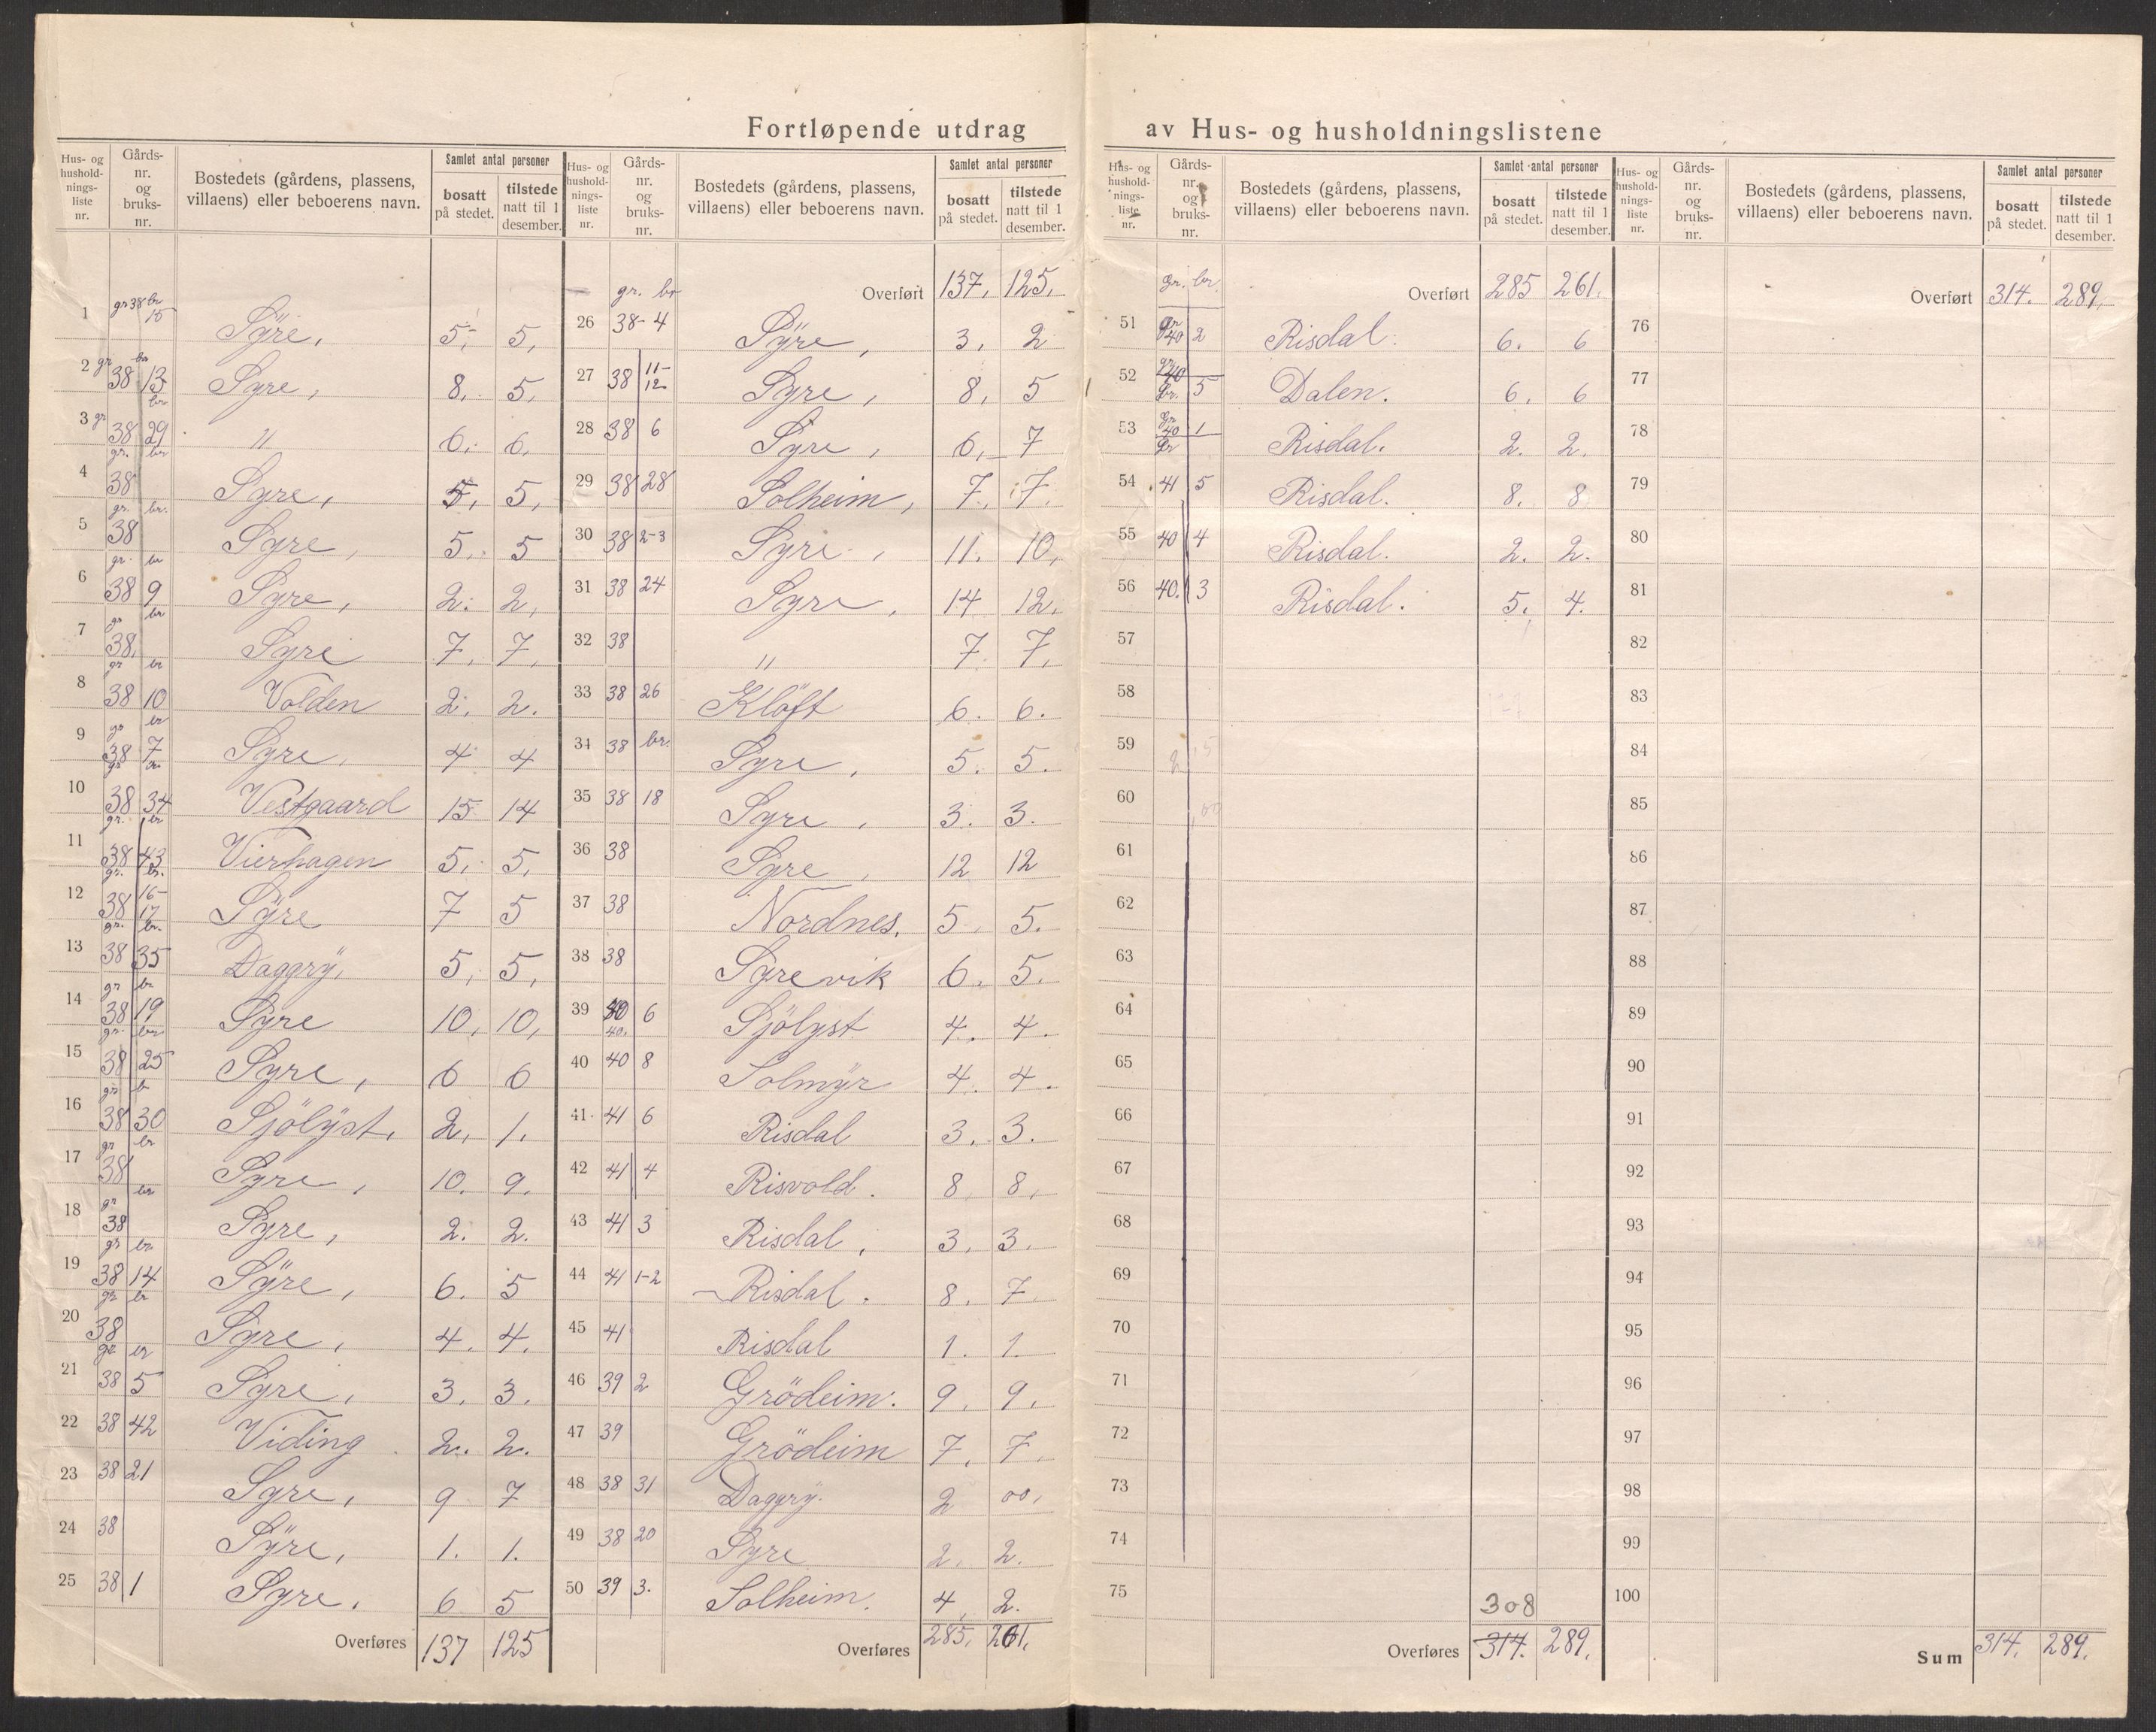 Fortløpende utdrag av Hus- og husholdningslistene
Hus- og hushold- nings- liste nr. | Gårds- nr. og bruks- nr. | Bostedets (gårdens, plassens, villaens) eller beboerens navn. | Samlet antal personer | bosatt på stedet. | tilstede natt til 1 desember.
1 gr 38 br 15 Syre, 5, 5,
2 gr 38 br 13 Syre, 8, 5,
3 gr 38 br 29 " 6, 6,
4 gr. 38 br Syre, 5, 5,
5 gr. 38 br. Syre, 5, 5
6 gr. 38 br 9 Syre, 2. 2,
7 gr 38. br Syre 7, 7,
8 gr 38 br 10 Volden 2. 2.
9 gr 38 br 7 Syre, 4 4
10 gr 38 br 34 Vestgaard 15 14
11 gr. 38 br 43 Vierhagen 5, 5,
12 gr. 38 br. 16-17 Syre 7 5
13 gr. 38 br. 35 Daggry, 5, 5,
14 gr 38 br 19 Syre 10, 10,
15 gr. 38 br 25 Syre, 6 6
16 gr 38 br 30 Sjölyst, 2, 1.
17 gr 38 br Syre, 10. 9.
18 gr 38 br Syre, 2. 2.
19 gr 38 br 14 Syre, 6. 5
20 gr 38 br Syre, 4. 4.
21 gr 38 br 5 Syre, 3. 3.
22 38 42 Viding 2. 2.
23 38 21 Syre, 9 7
24 38 Syre, 1. 1.
25 38 1 Syre, 6 5
Overføres 137 125
Hus- og hushold- nings- liste nr. | Gårds- nr. og bruks- nr. | Bostedets (gårdens, plassens, villaens) eller beboerens navn. | Samlet antal personer | bosatt på stedet. | tilstede natt til 1 desember.
gr. br Overført 137, 125,
26 38-4 Syre, 3, 2
27 38 11-12 Syre, 8, 5
28 38 6 Syre, 6, 7
29 38 28 Solheim, 7. 7.
30 38 2-3 Syre, 11. 10,
31 38 24 Syre, 14 12.
32 38 " 7 7,
33 38 26 Kløft 6. 6.
34 38 br. Syre, 5. 5.
35 38 18 Syre, 3. 3.
36 38 Syre, 12 12
37 38 Nordnes. 5 5.
38 38 Syrevik 6. 5.
39 40 40. 6 Sjölyst 4. 4.
40 40 8 Solmyr 4. 4.
41 41 6 Risdal 3. 3.
42 41 4 Risvold. 8. 8,
43 41 3 Risdal, 3, 3.
44 41 1-2 Risdal. 8. 7.
45 41 Risdal 1. 1.
46 39 2 Grödeim. 9. 9.
47 39 Grödeim 7. 7.
48 38 31 Daggry. 2 00,
49 38 20 Syre 2. 2.
50 39 3. Solheim. 4, 2.
Overføres 285, 261,
Hus- og hushold- nings- liste nr. | Gårds- nr. og bruks- nr. | Bostedets (gårdens, plassens, villaens) eller beboerens navn. | Samlet antal personer | bosatt på stedet. | tilstede natt til 1 desember.
gr. br. Overført 285 261.
51 gr 40 2 Risdal. 6. 6
52 gr 40 br. 5 Dalen. 6. 6
53 Gr 40 1 gr Risdal. 2. 2.
54 41 5 Risdal. 8. 8
55 40 4 Risdal. 2. 2.
56 40. 3 Risdal. 5. 4.
57
58
59
60
61
62
63
64
65
66
67
68
69
70
71
72
73
74
75 308
Overføres 314. 289.
Hus- og hushold- nings- liste nr. | Gårds- nr. og bruks- nr. | Bostedets (gårdens, plassens, villaens) eller beboerens navn. | Samlet antal personer | bosatt på stedet. | tilstede natt til 1 desember.
Overført 314. 289.
76
77
78
79
80
81
82
83
84
85
86
87
88
89
90
91
92
93
94
95
96
97
98
99
100
Sum 314. 289.